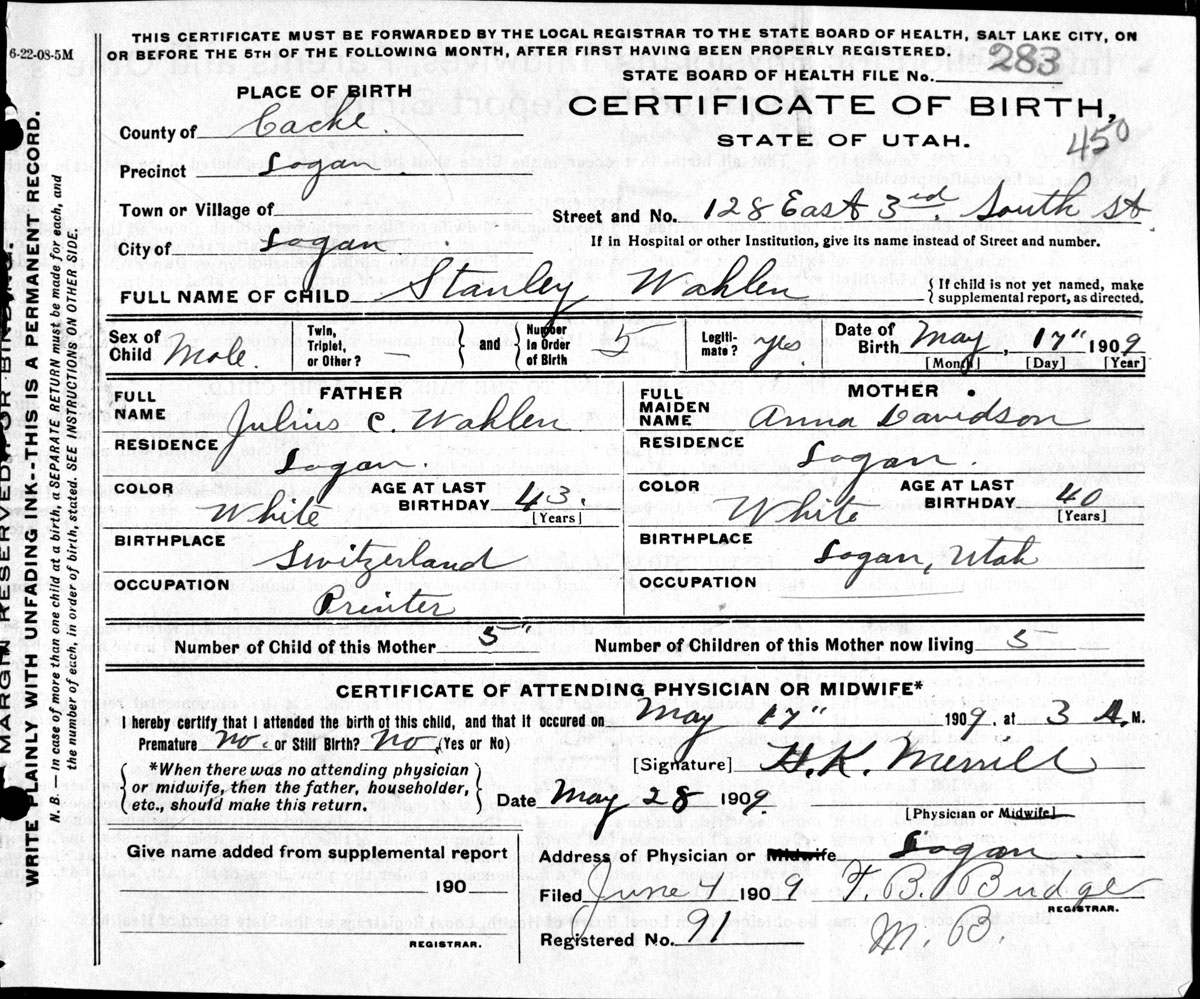 6-22-08-5M
THIS CERTIFICATE MUST BE FORWARDED BY THE LOCAL REGISTRAR TO THE STATE BOARD OF HEALTH, SALT LAKE CITY, ON
OR BEFORE THE 5TH OF THE FOLLOWING MONTH, AFTER FIRST HAVING BEEN PROPERLY REGISTERED.
STATE BOARD OF HEALTH FILE No. 283
PLACE OF BIRTH
CERTIFICATE OF BIRTH,
STATE OF UTAH.
450
County of Cache.
Precinct Logan.
Town or Village of
Street and No. 128 East 3rd. South St
City of Logan.
If in Hospital or other Institution, give its name instead of Street and number.
FULL NAME OF CHILD Stanley Wahlen
{ If child is not yet named, make
supplemental report, as directed.
Sex of Child Male. Twin, Triplet, or Other? — } and { Number in Order of Birth 5 Legiti-mate? yes Date of Birth May, 17" 1909
[Month] [Day] [Year]
FATHER
FULL NAME Julius C. Wahlen
RESIDENCE Logan.
COLOR White AGE AT LAST BIRTHDAY 43.
[Years]
BIRTHPLACE Switzerland
OCCUPATION Printer
MOTHER
FULL MAIDEN NAME Anna Davidson
RESIDENCE Logan.
COLOR White AGE AT LAST BIRTHDAY 40
[Years]
BIRTHPLACE Logan, Utah
OCCUPATION
Number of Child of this Mother 5" Number of Children of this Mother now living 5
CERTIFICATE OF ATTENDING PHYSICIAN OR MIDWIFE*
I hereby certify that I attended the birth of this child, and that it occured on May 17" 1909. at 3 A. M.
Premature no. or Still Birth? No. (Yes or No)
*When there was no attending physician
or midwife, then the father, householder,
etc., should make this return.
[Signature] H. K. Merrill
Date May 28 1909.
[Physician or Midwife]
Give name added from supplemental report
190
REGISTRAR.
Address of Physician or Midwife Logan
Filed June 4 1909 T. B. Budge
REGISTRAR.
Registered No. 91 M. B.
MARGIN RESERVED FOR BINDING.
WRITE PLAINLY WITH UNFADING INK--THIS IS A PERMANENT RECORD.
N. B.—In case of more than one child at a birth, a SEPARATE RETURN must be made for each, and
the number of each, in order of birth, stated. SEE INSTRUCTIONS ON OTHER SIDE.